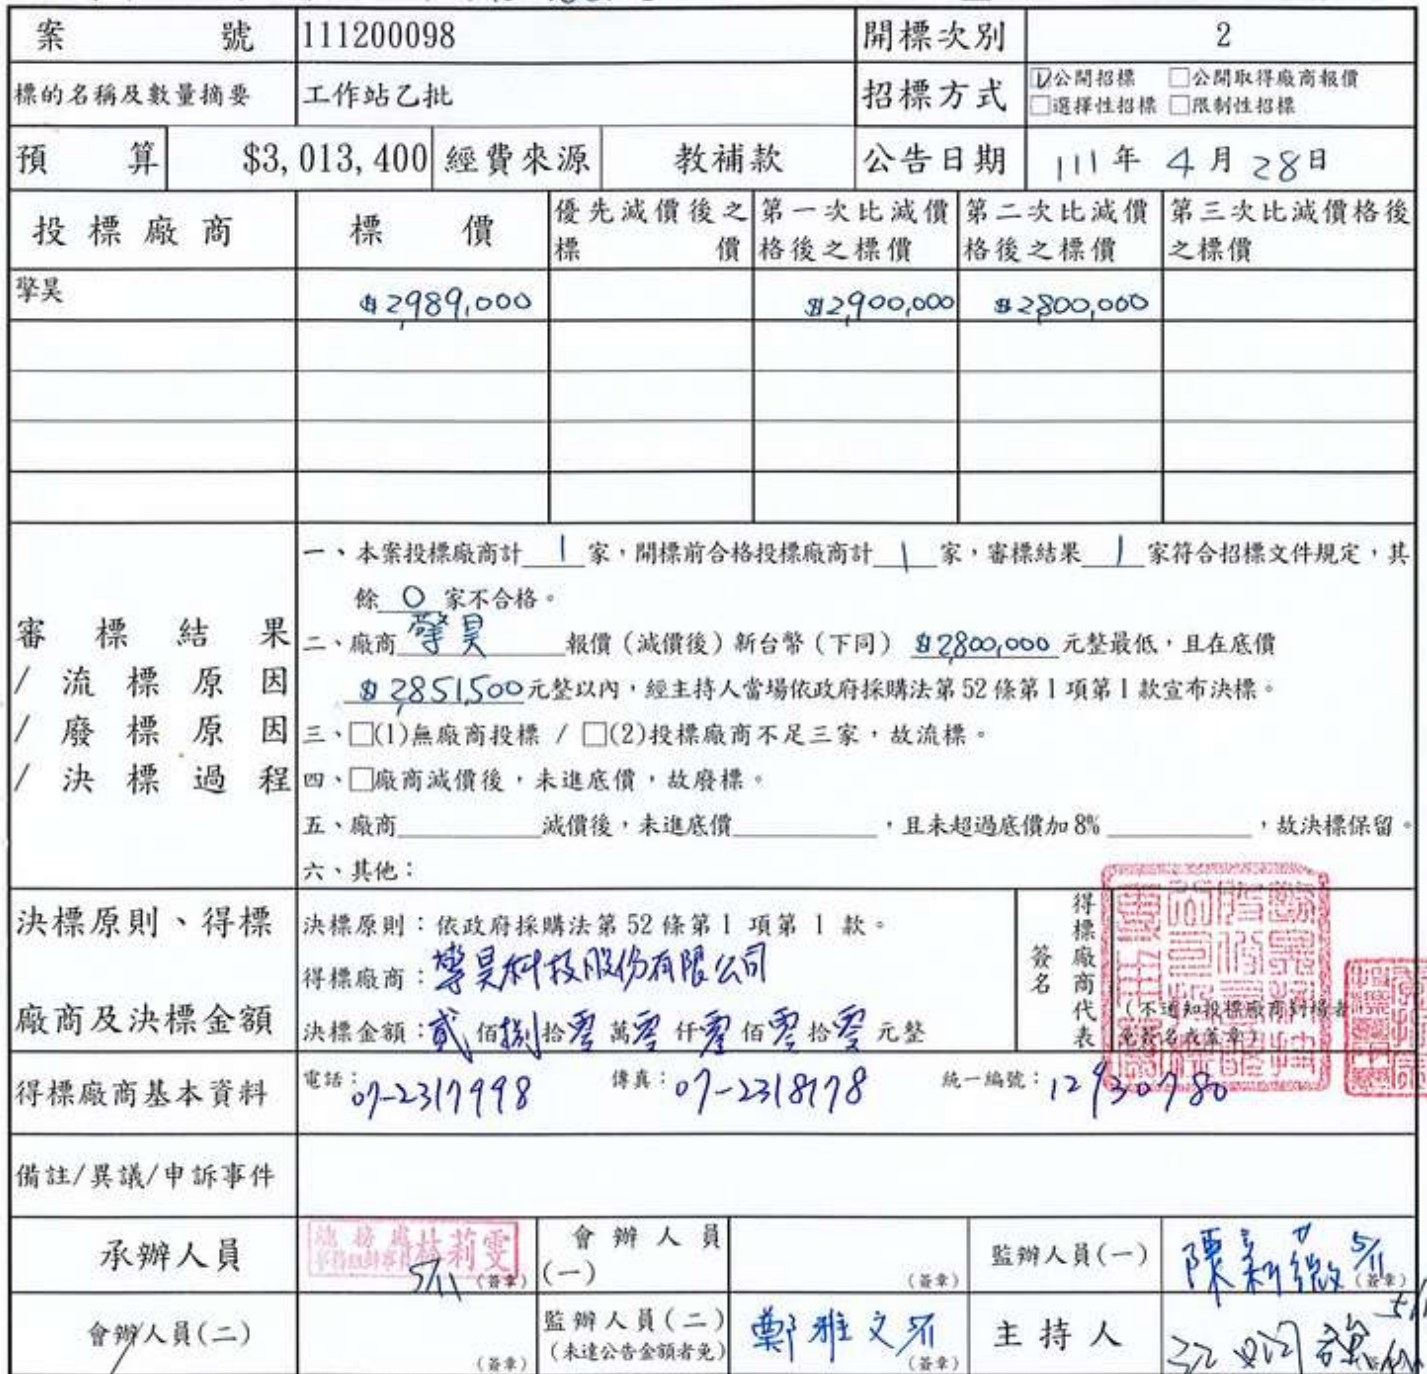 案 號 111200098 開標次別 2
標的名稱及數量摘要 工作站乙批 招標方式 ☑公開招標 □公開取得廠商報價
□選擇性招標 □限制性招標
預 算 $3,013,400 經費來源 教補款 公告日期 111年 4月 28日
投標廠商 標 價 優先減價後之標 價 第一次比減價格後之標價 第二次比減價格後之標價 第三次比減價格後之標價
擎昊 $2,989,000 $2,900,000 $2,800,000
審標結果
/流標原因
/廢標原因
/決標過程
一、本案投標廠商計 1 家,開標前合格投標廠商計 1 家,審標結果 1 家符合招標文件規定,其
餘 0 家不合格。
二、廠商 擎昊 報價(減價後)新台幣(下同) $2,800,000 元整最低,且在底價
$2,851,500元整以內,經主持人當場依政府採購法第52條第1項第1款宣布決標。
三、□(1)無廠商投標 / □(2)投標廠商不足三家,故流標。
四、□廠商減價後,未進底價,故廢標。
五、廠商 減價後,未進底價 ,且未超過底價加8% ,故決標保留。
六、其他:
決標原則、得標
廠商及決標金額
決標原則:依政府採購法第52條第1 項第 1 款。
得標廠商:擎昊科技股份有限公司
決標金額:貳佰捌拾零萬零仟零佰零拾零元整
得標廠商代表
簽名
(不通知投標廠商到場者
免簽名或蓋章)
得標廠商基本資料 電話:07-2317998 傳真:07-2318178 統一編號:12930780
備註/異議/申訴事件
承辦人員 林莉雯 5/11 (簽章) 會辦人員(一) (簽章) 監辦人員(一) 5/11 (簽章)
會辦人員(二) (簽章) 監辦人員(二) (未達公告金額者免) 鄭雅文 (簽章) 主持人